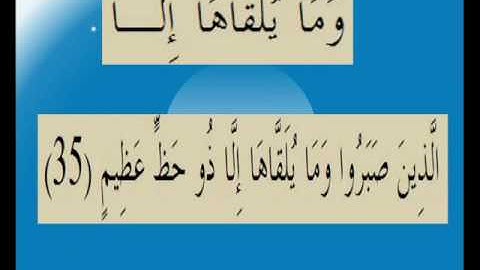 وَمَا يُلَقَّاهَا إِلَّا
الَّذِينَ صَبَرُوا وَمَا يُلَقَّاهَا إِلَّا ذُو حَظٍّ عَظِيمٍ (35)